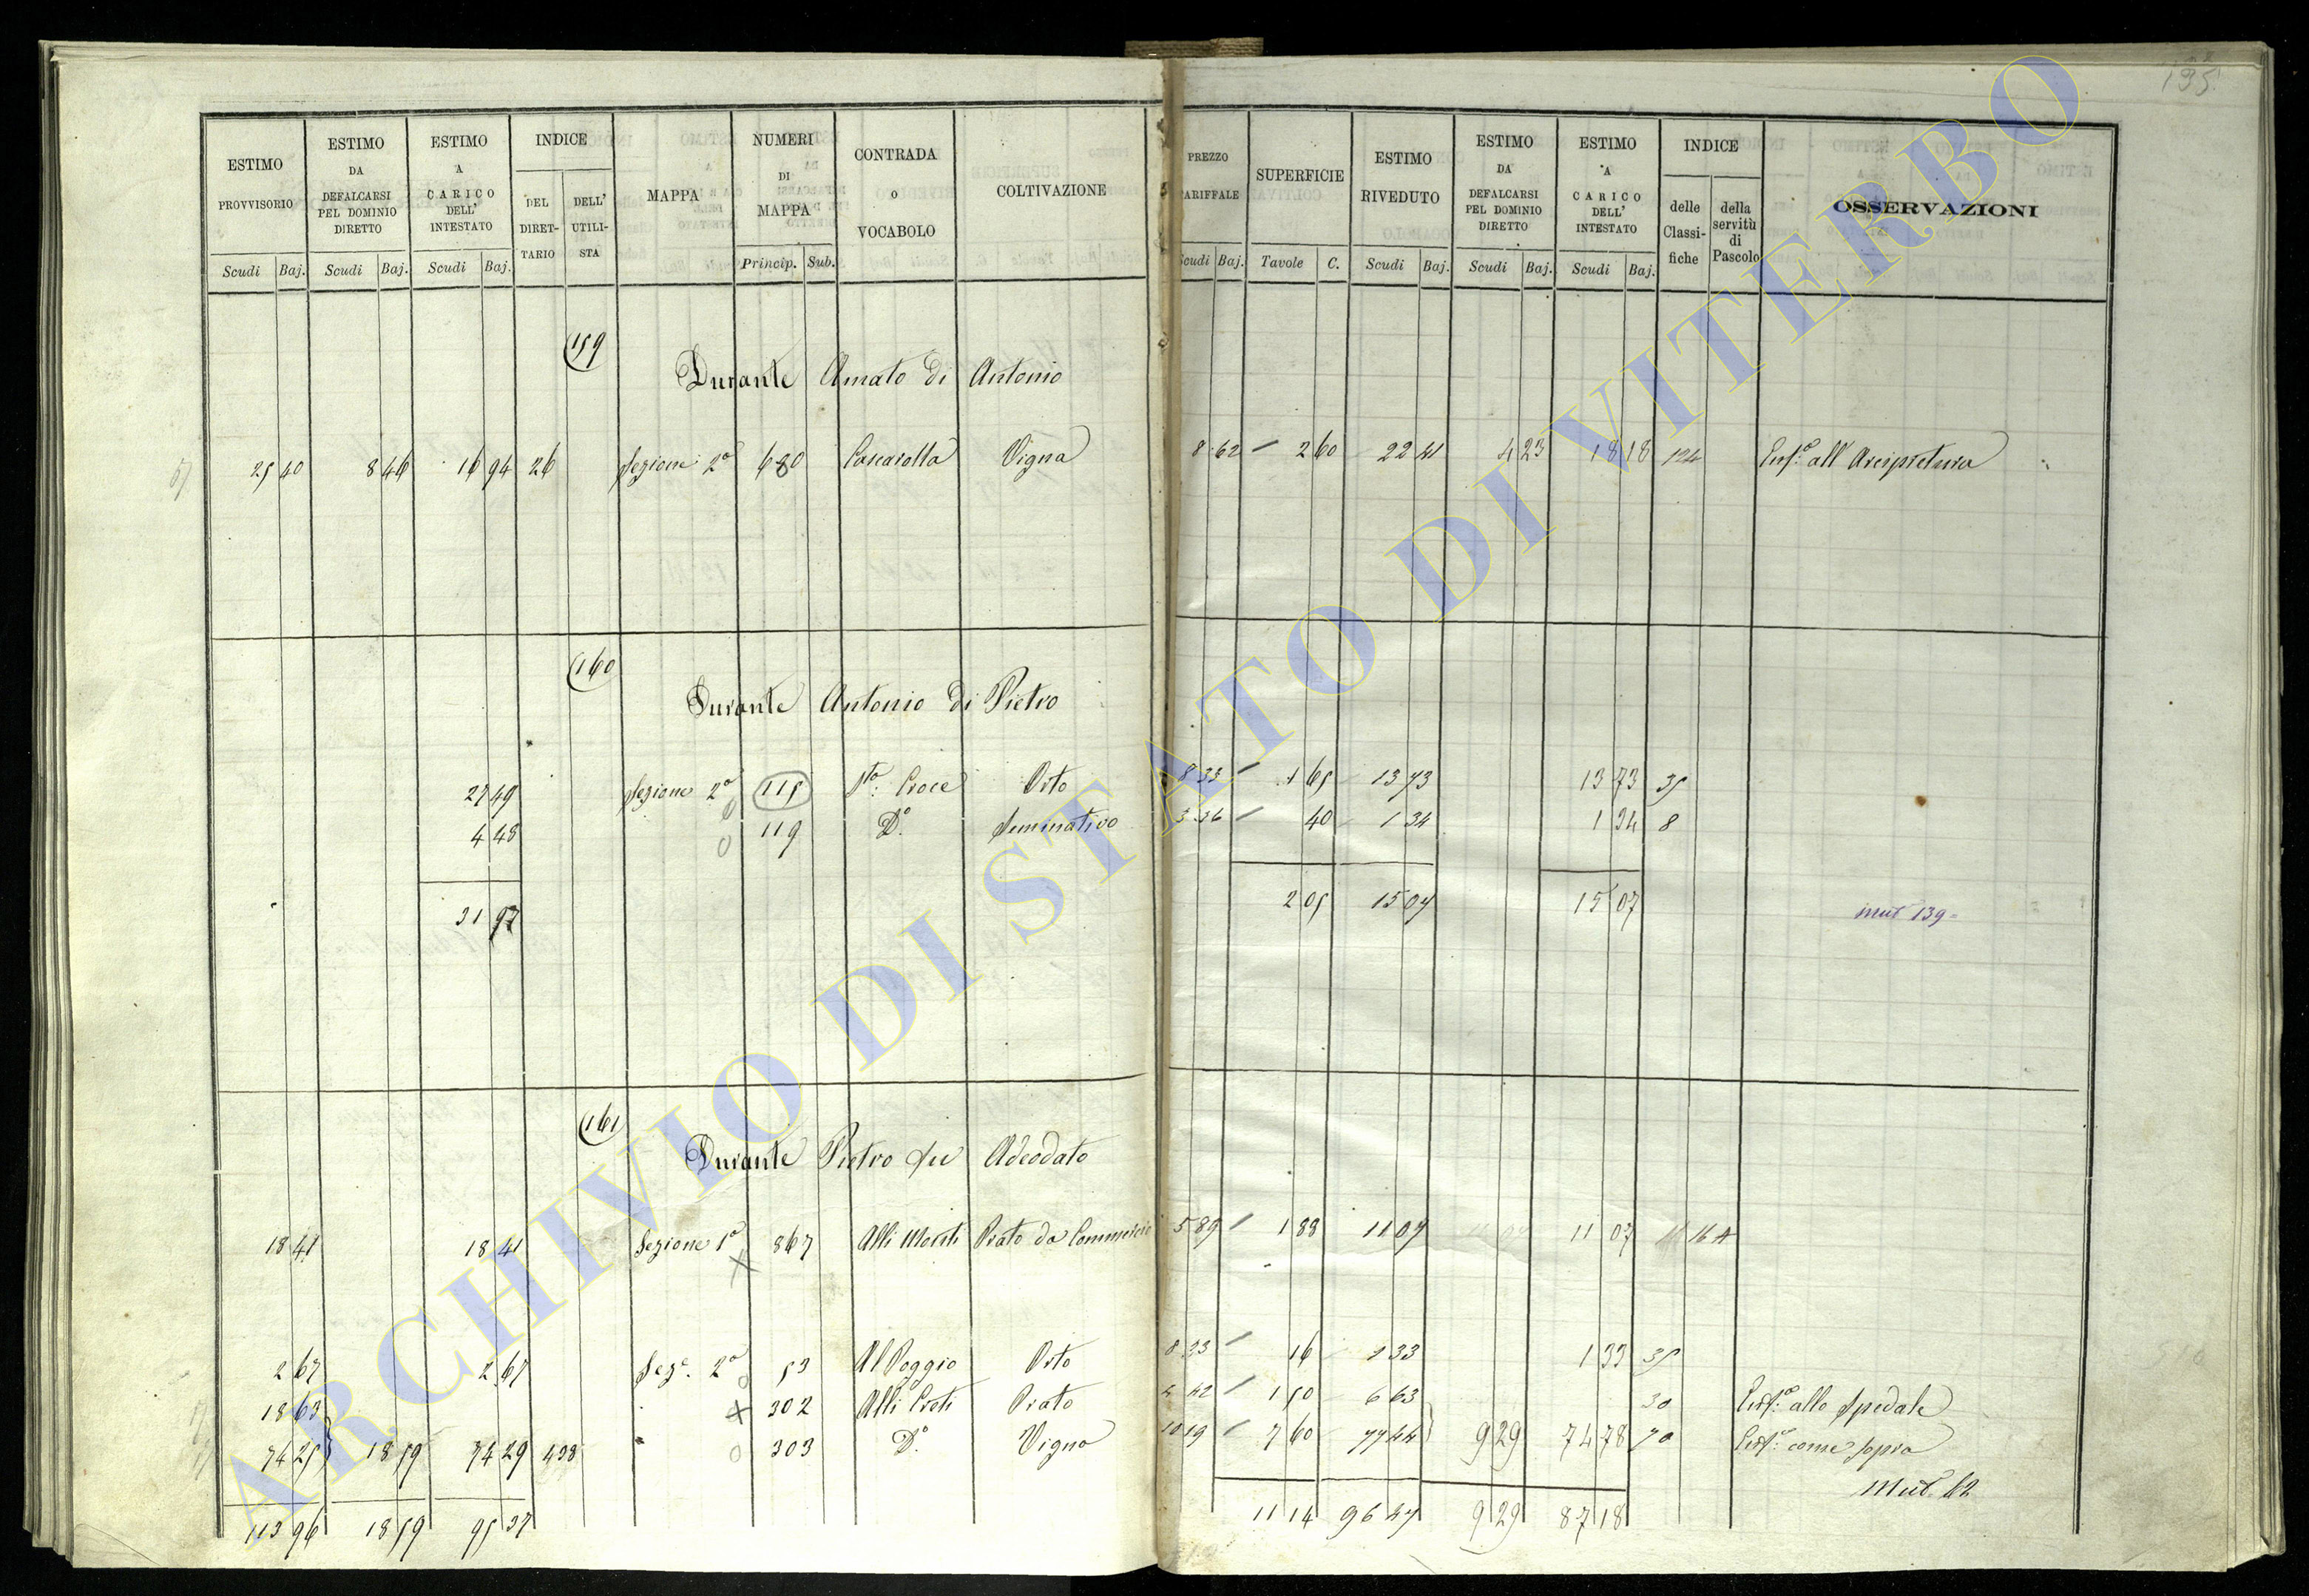 195
ESTIMO PROVVISORIO | ESTIMO DA DEFALCARSI PEL DOMINIO DIRETTO | ESTIMO A CARICO DELL' INTESTATO | INDICE DEL DIRET-TARIO | DELL' UTILI-STA | MAPPA | NUMERI DI MAPPA | CONTRADA o VOCABOLO | COLTIVAZIONE | PREZZO TARIFFALE | SUPERFICIE | ESTIMO RIVEDUTO | ESTIMO DA DEFALCARSI PEL DOMINIO DIRETTO | ESTIMO A CARICO DELL' INTESTATO | INDICE delle Classi-fiche | della servitù di Pascolo | OSSERVAZIONI
Scudi Baj. | Scudi Baj. | Scudi Baj. | Princip. Sub. | Scudi Baj. | Tavole C. | Scudi Baj. | Scudi Baj. | Scudi Baj.
159
Durante Amato di Antonio
25 40 | 8 46 | 16 94 | 26 | Sezione 2a | 680 | Vigna | 8 62 | 2 60 | 22 41 | 4 23 | 18 18 | 124 | Enf.a all'Arcipretura
160
Durante Antonio di Pietro
27 49 | Sezione 2a | 115 | Sta: Croce | Orto | 8 33 | 1 65 | 13 73 | 13 73 | 35
4 48 | 119 | Do. | Seminativo | 3 36 | 40 | 1 34 | 1 34 | 8
31 97 | 2 05 | 15 07 | 15 07 | mut 139=
161
Durante Pietro fu Adeodato
18 41 | 18 41 | Sezione 1a | 867 | Alli Monti | Prato da Commercio | 5 89 | 1 88 | 11 07 | 11 07 | 164
2 67 | 2 67 | Seze. 2a | 53 | Al Poggio | Orto | 8 33 | 16 | 1 33 | 1 33 | 35
18 63 | 302 | Alli Preti | Prato | 4 42 | 1 50 | 6 63 | 30 | Enf.a allo Spedale
74 25 | 18 59 | 74 29 | 438 | 303 | Do. | Vigna | 10 19 | 7 60 | 77 44 | 9 29 | 74 78 | 70 | Enf.a come sopra
Mut. 62
113 96 | 18 59 | 95 37 | 11 14 | 96 47 | 9 29 | 87 18
ARCHIVIO DI STATO DI VITERBO